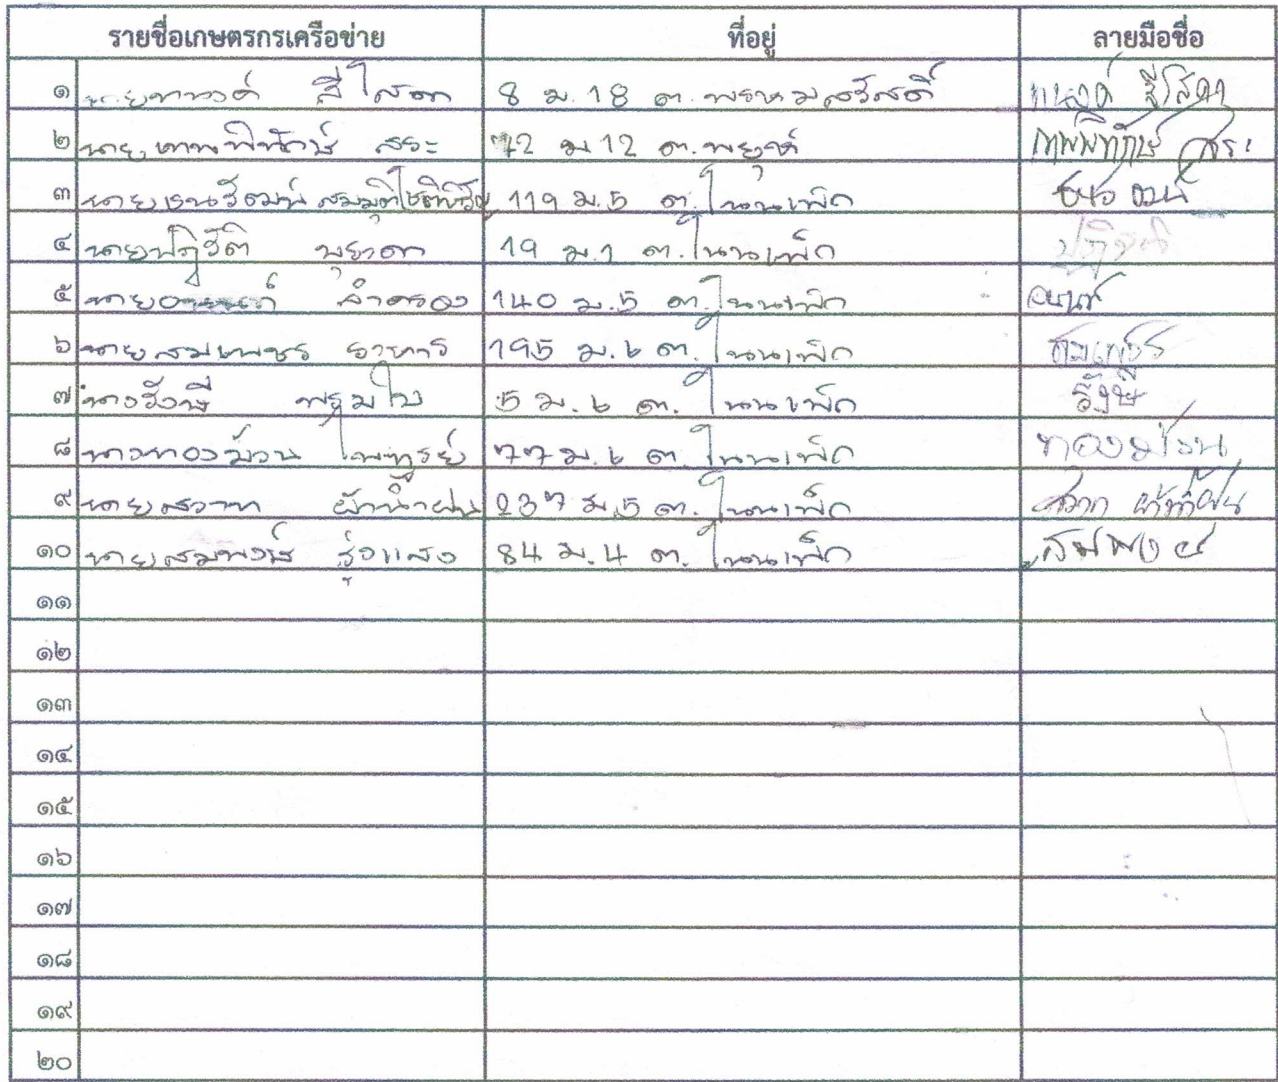 รายชื่อเกษตรกรเครือข่าย ที่อยู่ ลายมือชื่อ
๑ นายทนงค์ สีโสดา 8 ม.18 ต.พรหมสวัสดิ์ ทนงค์ สีโสดา
๒ นายเทพพิทักษ์ สระ 42 ม 12 ต.พยุห์ เทพพิทักษ์ สระ
๓ นายธนวัฒน์ 119 ม.5 ต.โนนเพ็ก
๔ นายปฏิวัติ 19 ม.1 ต.โนนเพ็ก ปฏิวัติ
๕ นาย 140 ม.5 ต.โนนเพ็ก
๖ นายสมเพชร อาหาร 195 ม.๖ ต.โนนเพ็ก สมเพชร
๗ นางรังษี 5 ม.๖ ต.โนนเพ็ก รังษี
๘ นางทองม้วน ไพฑูรย์ 77 ม.๖ ต.โนนเพ็ก ทองม้วน
๙ นายสวาท ผ้าน้ำฝน 237 ม.5 ต.โนนเพ็ก สวาท
๑๐ นายสมพงษ์ รุ่งแสง 84 ม.4 ต.โนนเพ็ก สมพงษ์
๑๑
๑๒
๑๓
๑๔
๑๕
๑๖
๑๗
๑๘
๑๙
๒๐